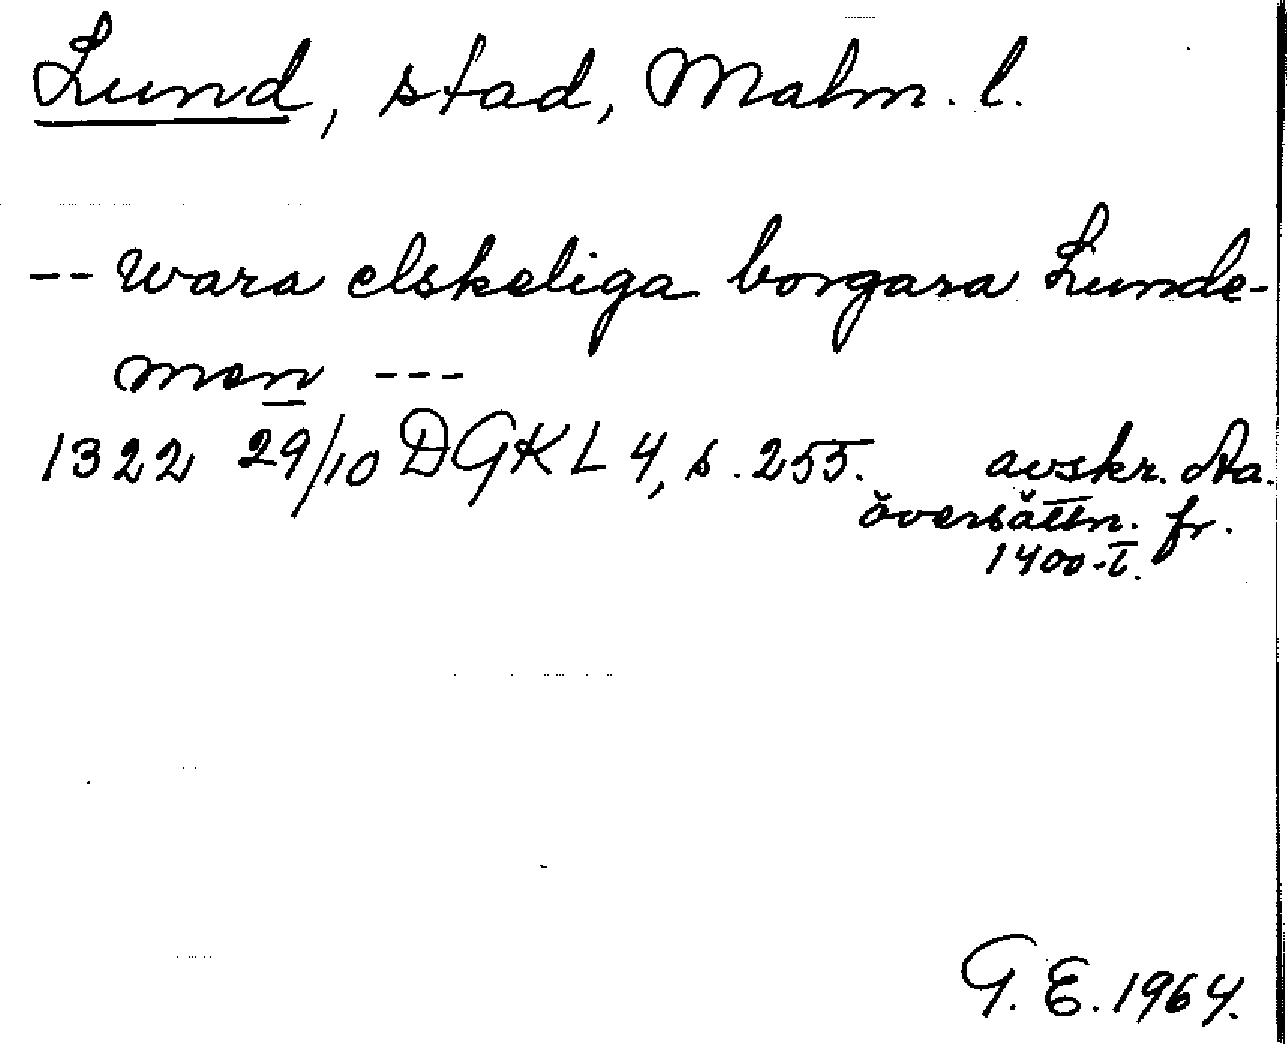 Lund, stad, Malm. l.
-- wara elskeliga borgara Lunde-
men ---
1322 29/10 DGKL 4, s. 255. avskr. Aa.
översättn. fr.
1400-t.
G. E. 1964.